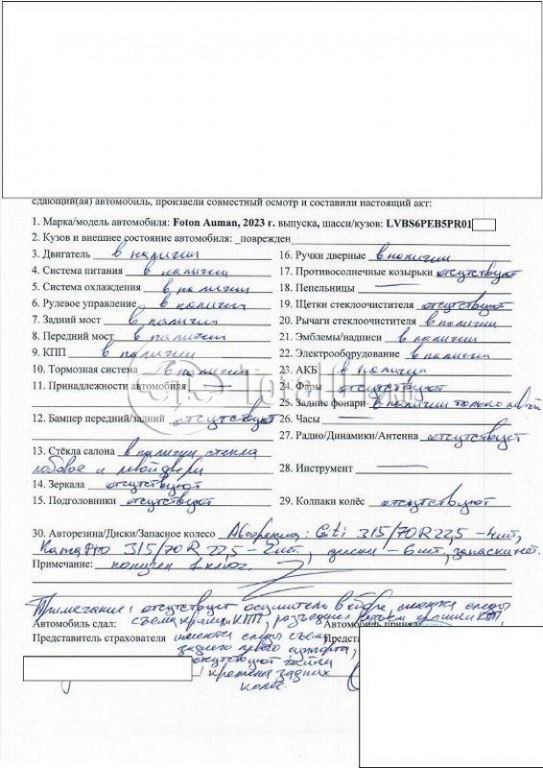 сдающий(ая) автомобиль, произвели совместный осмотр и составили настоящий акт:
1. Марка/модель автомобиля: Foton Auman, 2023 г. выпуска, шасси/кузов: LVBS6PEB5PR01
2. Кузов и внешнее состояние автомобиля: _поврежден
3. Двигатель в наличии
4. Система питания в наличии
5. Система охлаждения в наличии
6. Рулевое управление в наличии
7. Задний мост в наличии
8. Передний мост в наличии
9. КПП в наличии
10. Тормозная система в наличии
11. Принадлежности автомобиля —
12. Бампер передний/задний отсутствуют
13. Стёкла салона в наличии стекла
лобовое и левой двери
14. Зеркала отсутствуют
15. Подголовники отсутствуют
16. Ручки дверные в наличии
17. Противосолнечные козырьки отсутствуют
18. Пепельницы —
19. Щетки стеклоочистителя отсутствуют
20. Рычаги стеклоочистителя в наличии
21. Эмблемы/надписи в наличии
22. Электрооборудование в наличии
23. АКБ в наличии
24. Фары отсутствуют
25. Задние фонари в наличии только левый
26. Часы —
27. Радио/Динамики/Антенна отсутствуют
28. Инструмент —
29. Колпаки колёс отсутствуют
30. Авторезина/Диски/Запасное колесо Авторезина: Giti 315/70R22,5 – 4шт,
Kama PRO 315/70R 22,5 – 2шт., диски – 6шт, запаски нет.
Примечание: получен 1 ключ.
Примечание: отсутствует осушитель в сборе, имеются следы
Автомобиль сдал: съема крышки КПП, разъединен
Представитель страхователя имеются следы съема
заднего левого суппорта,
отсутствуют гайки
крепежа задних
колес.